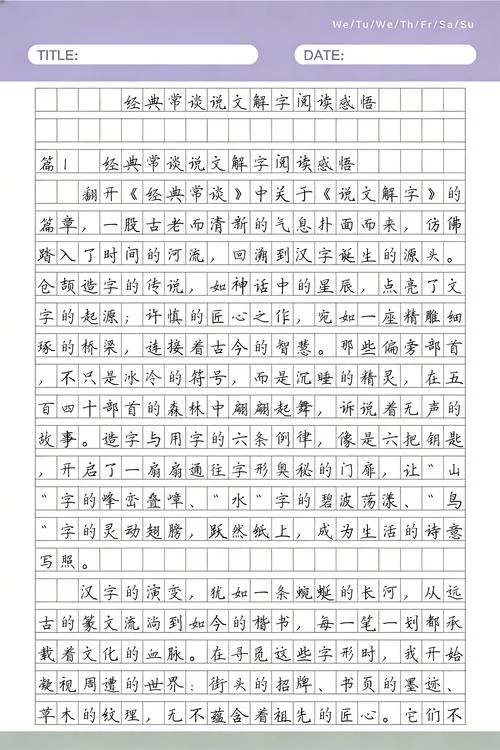 We/Tu/We/Th/Fr/Sa/Su
TITLE: DATE:
经典常谈说文解字阅读感悟
篇1 经典常谈说文解字阅读感悟
翻开《经典常谈》中关于《说文解字》的
篇章，一股古老而清新的气息扑面而来，仿佛
踏入了时间的河流，回溯到汉字诞生的源头。
仓颉造字的传说，如神话中的星辰，点亮了文
字的起源；许慎的匠心之作，宛如一座精雕细
琢的桥梁，连接着古今的智慧。那些偏旁部首
，不只是冰冷的符号，而是沉睡的精灵，在五
百四十部首的森林中翩翩起舞，诉说着无声的
故事。造字与用字的六条例律，像是六把钥匙
，开启了一扇扇通往字形奥秘的门扉，让“山
“字的峰峦叠嶂、“水“字的碧波荡漾、“鸟
“字的灵动翅膀，跃然纸上，成为生活的诗意
写照。
汉字的演变，犹如一条蜿蜒的长河，从远
古的篆文流淌到如今的楷书，每一笔一划都承
载着文化的血脉。在寻觅这些字形时，我开始
凝视周遭的世界：街头的招牌、书页的墨迹、
草木的纹理，无不蕴含着祖先的匠心。它们不